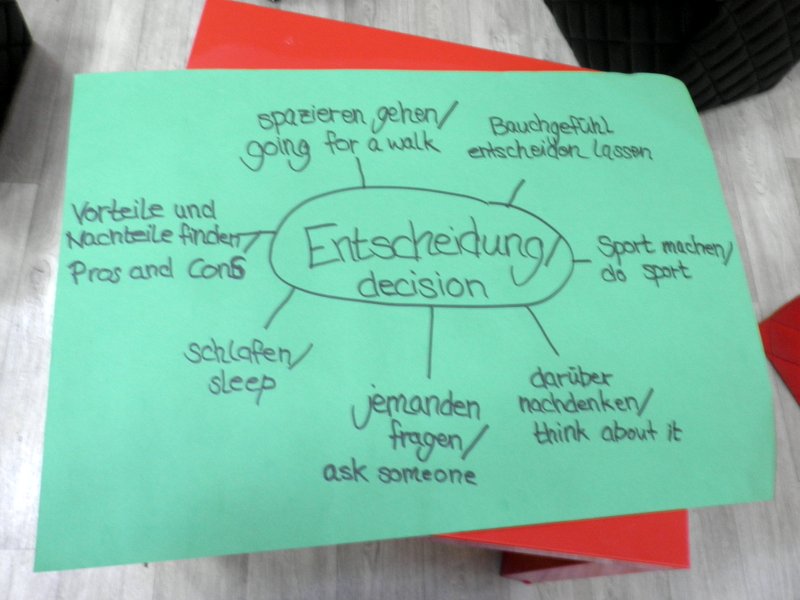 spazieren gehen/
going for a walk
Bauchgefühl
entscheiden lassen
Vorteile und
Nachteile finden/
Pros and Cons
Entscheidung/
decision
Sport machen/
do sport
schlafen/
sleep
jemanden
fragen/
ask someone
darüber
nachdenken/
think about it